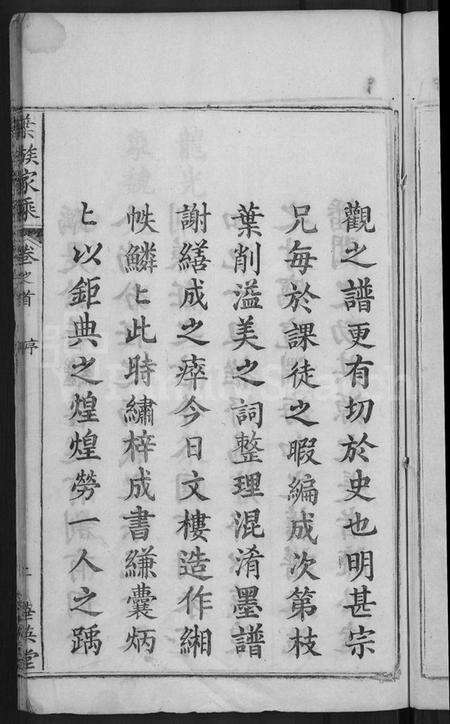 觀之譜更有切於史也明甚宗
兄每於課徒之暇編成次第枝
葉削溢美之詞整理混淆墨譜
謝繕成之瘁今日文樓造作緗
帙鱗〻此時繡梓成書縑囊炳
〻以鉅典之煌煌勞一人之踽
葉族家乘
卷之首 序